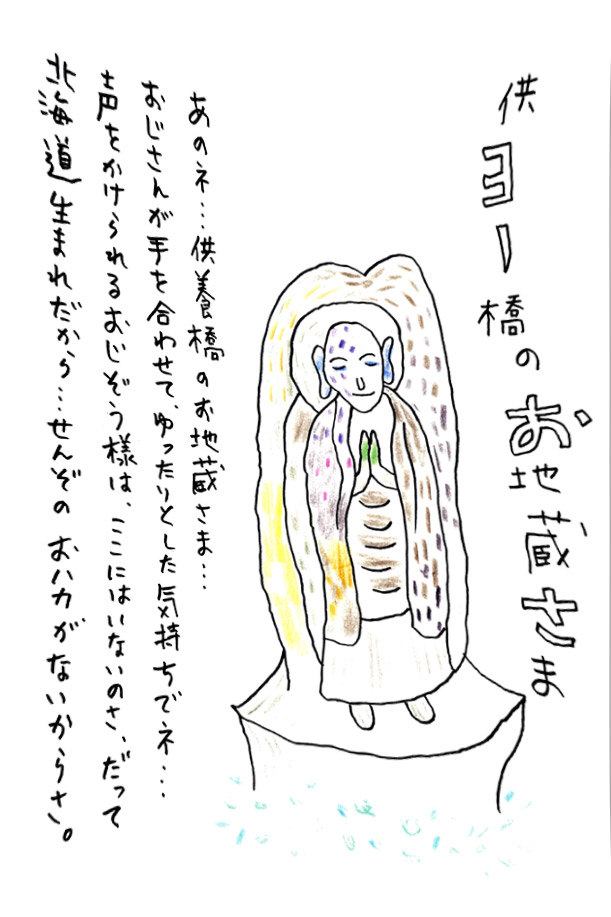 供ヨー橋のお地蔵さま
あのネ…供養橋のお地蔵さま…
おじさんが手を合わせて、ゆったりとした気持ちでネ…
声をかけられるおじぞう様は、ここにはいないのさ、だって
北海道生まれだから…せんぞのおハカがないからさ。